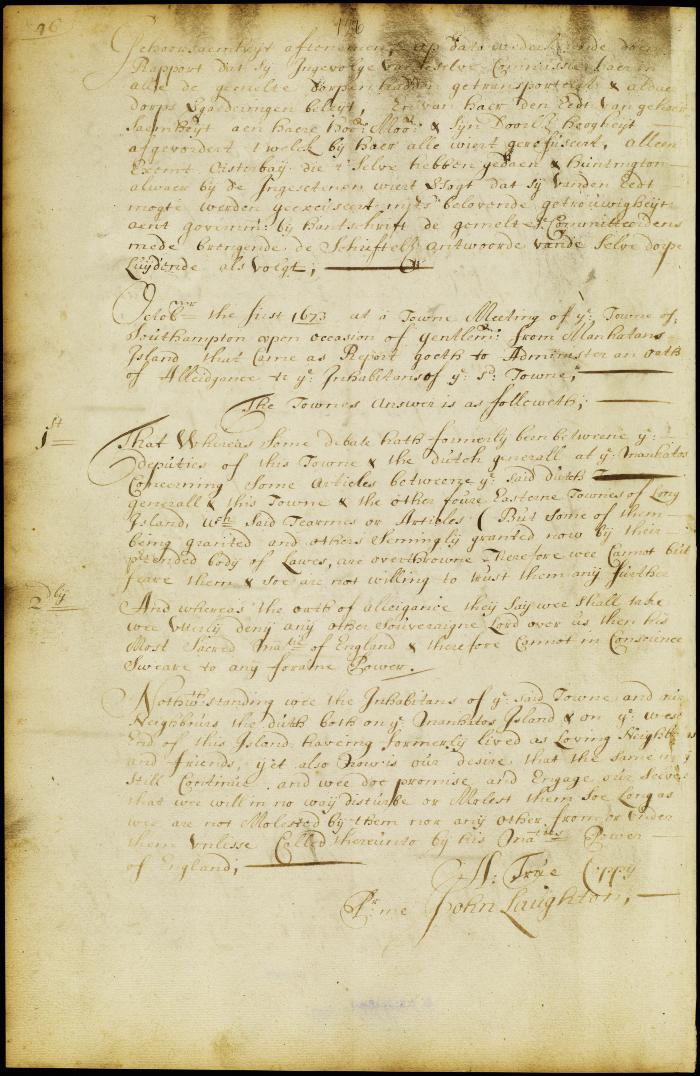 96
Gehoorsaemheyt afteneemen, op dato onderstaende doen
Rapport dat sij Ingevolge van deselve Commissie haer in
alle de gemelte Dorpen hadden getransporteert & aldaer
dorps vergaderingen beleyt, En van haer den Eedt van gehoor
Saemheyt aen haere Hoo: Moo: & Sijn Doorl: hoogheyt
afgevordert, t'welck bij haer alle wiert gerefuseert, alleen
Exemt Oisterbaij die 't Selve hebben gedaen & Huntington
alwaer bij de Ingesetenen wiert versogt dat sij vanden Eedt
mogte werden geexcuseert mits belovende getrouwigheyt
aent govermt: bij hantschrift de gemelte Committeerdens
mede brengende de Schriftel: antwoorde vande Selve dorpe
Luydende als volgt;
Octobr the first 1673 at a Towne Meeting of ye: Towne of
Southampton upon occasion of gentlem: from Manhatans
Island that Came as Report goeth to Administer an oath
of Alleidgance to ye: Inhabitans of ye: sd: Towne;
The Townes Answer is as followeth;
1st
That Whereas some debate hath formerly been betweene ye:
deputies of this Towne & the dutch generall at ye: Manhatos
Concerning Some Articles betweene ye: said dutch
generall & this Towne & the other foure Easterne Townes of Long
Island, wch: said Tearmes or Articles (But some of them
being granted and others Seemingly granted now by their
ptended body of Lawes, are overthrowne Therefore wee Cannot but
feare them & soe are not willing to trust them any further
2dly
And whereas the oath of alleigance they say wee shall take
wee Utterly deny any other Souveraigne Lord over us then his
Most Sacred Matie of England & therefore Cannot in Conscience
Sweare to any foraine Power.
Nothwthstanding wee the Inhabitans of ye: said Towne and
Neighbours the dutch both on ye: Manhatos Island & on ye: west
End of this Island haveing formerly lived as Loving Neighb
and friends, yet also Now is our desire that the same may
Still Continue and wee doe promise and Engage our selves
that wee will in no way disturbe or Molest them Soe Long as
wee are not Molested by them nor any other from or under
them Unlesse Called thereunto by his Maties Power
of England;
A: True Coppy
Pr: me John Laughton;